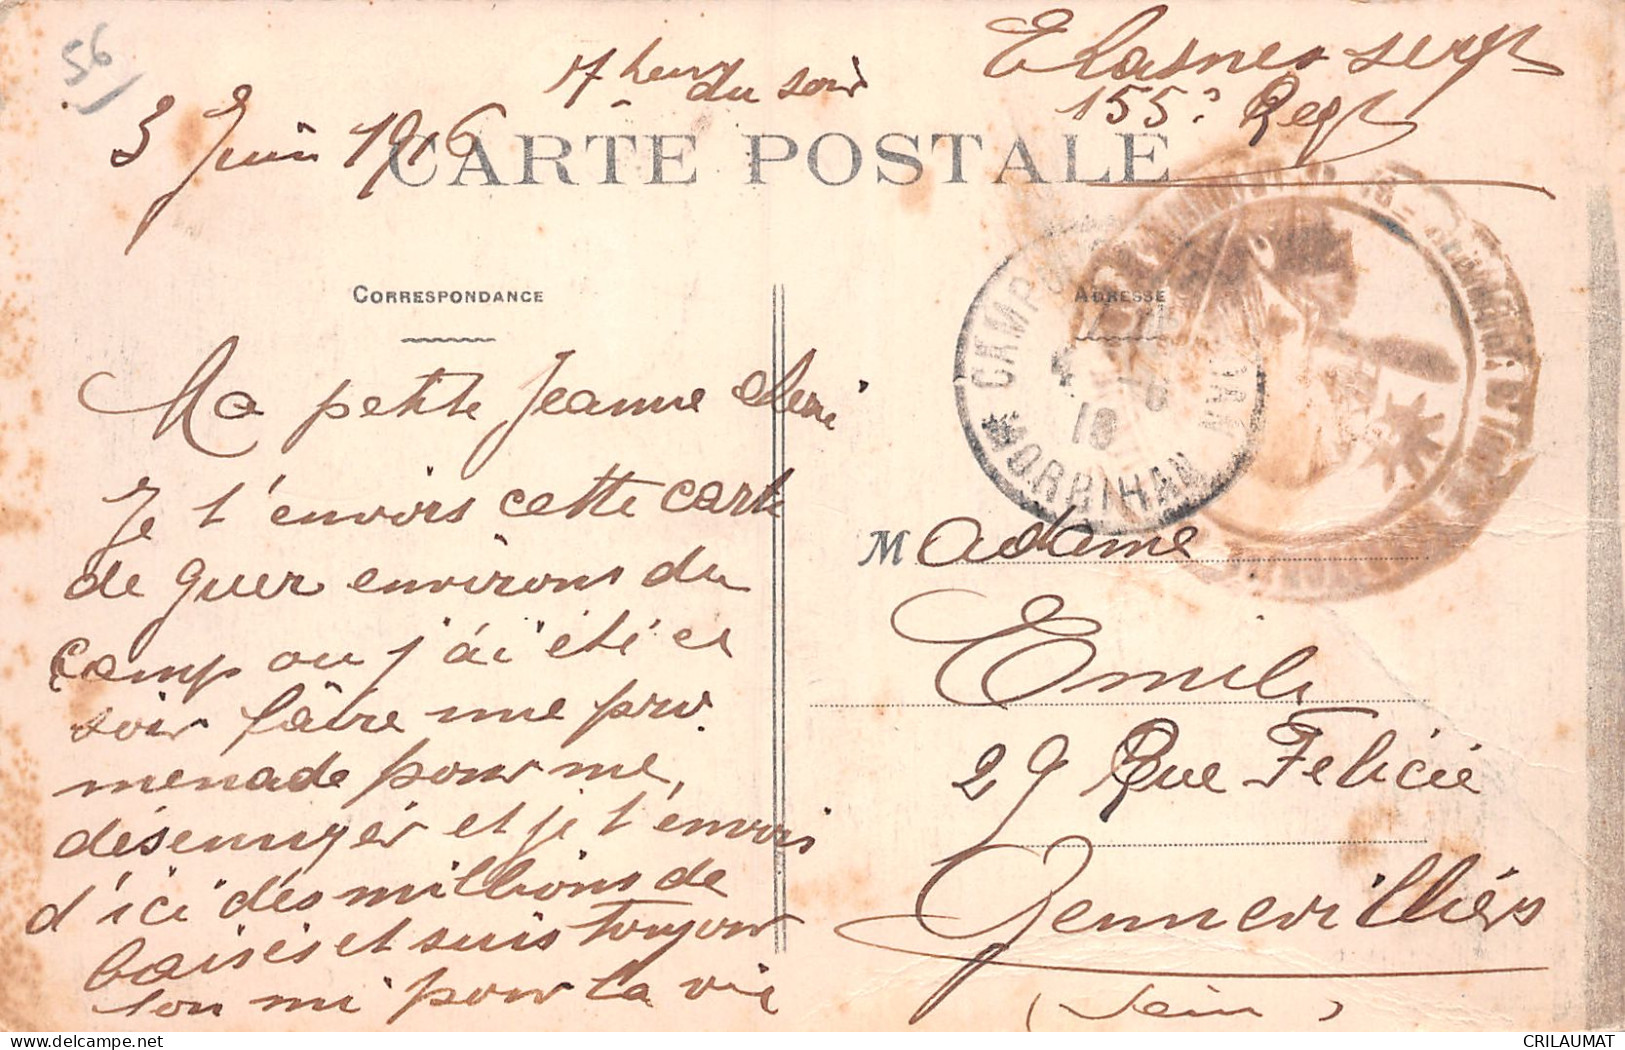 56
3 Juin 1916
17 heur
du soir
155e Regt
CARTE POSTALE
CORRESPONDANCE
ADRESSE
MORBIHAN
Ma petite Jeanne cheri
Je t'envois cette carte
de guer environs du
camp ou j'ai été ce
soir faire une pro.
menade pour me,
désennuyér et je t'envois
d'ici dés millions de
baisés et suis toujour
ton mi pour la vie
Madame
Emile
29 Rue Félicie
Gennevilliérs
(Sein)
CRILAUMAT